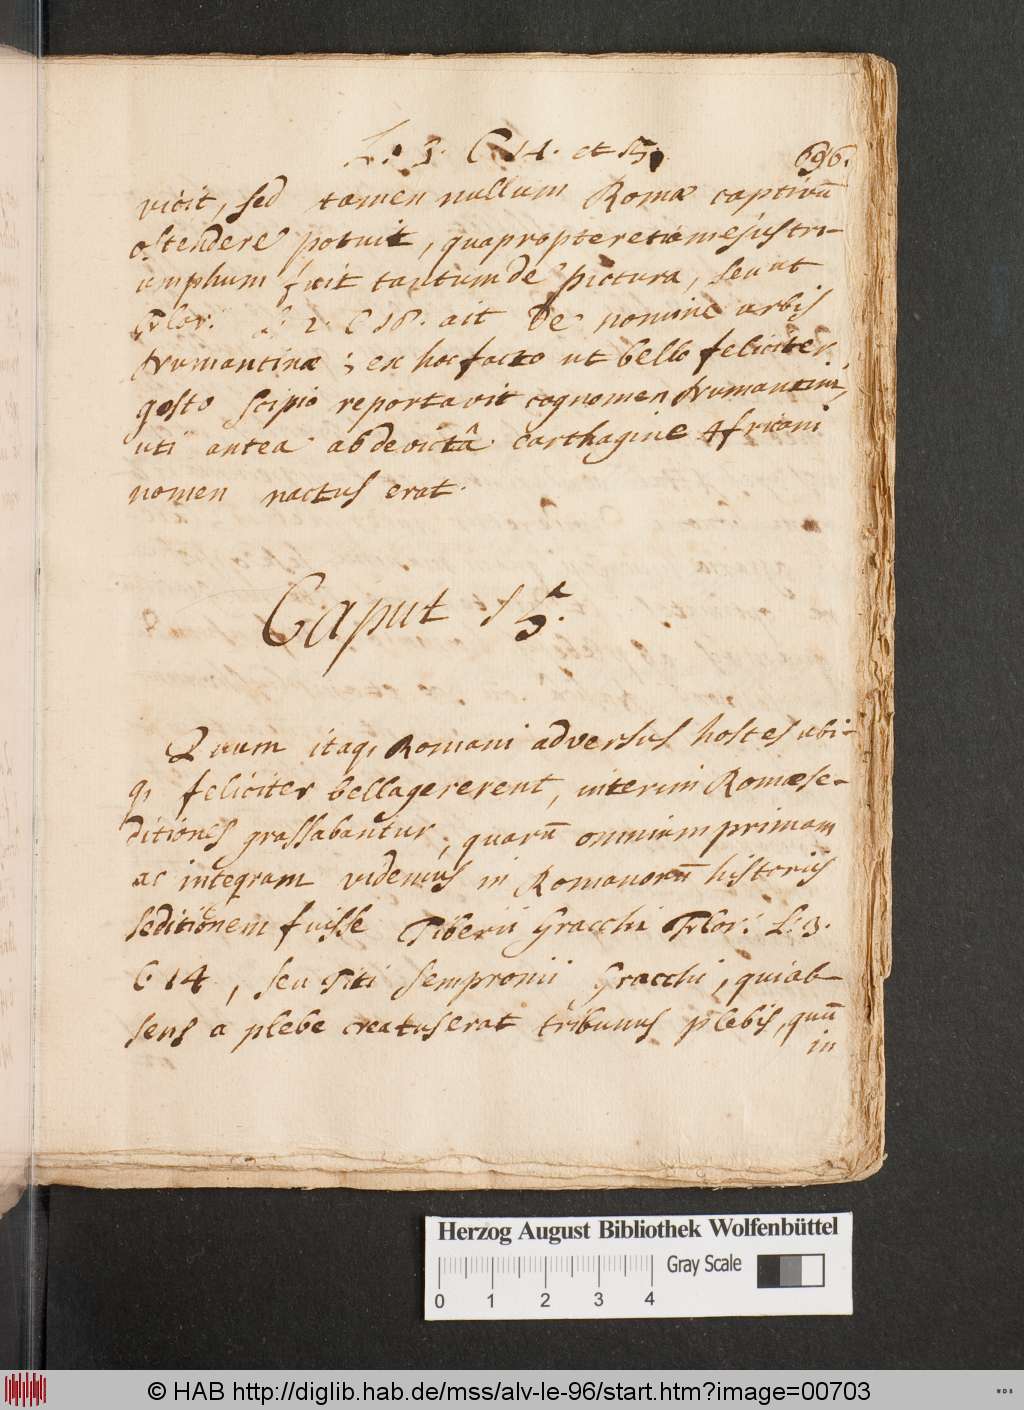 L. 3. C 14. et 15.
696.
vicit, sed tamen nullum Romæ captivū
ostendere potuit, quapropter etiam ejus tri-
umphum fuit tantum de pictura, seu ut
Flor. L. 2. C 18. ait de nomine urbis
Numantinæ; ex hoc facto ut bello feliciter
gesto Scipio reportavit cognomen Numantini,
uti antea ab devictâ Carthagine Africani
nomen nactus erat.
Caput 15.
Quum itaq, Romani adversus hostes ubi-
q, feliciter bella gererent, interim Romæ se-
ditiones grassabantur, quarū omnium primam
ac integram videmus in Romanorū historiis
seditionem fuisse Tiberii Gracchi Flor. L. 3.
C 14, seu Titi Sempronii Gracchi, qui ab-
sens a plebe creatus erat tribunus plebis, quū
in
Herzog August Bibliothek Wolfenbüttel
Gray Scale
0 1 2 3 4
© HAB http://diglib.hab.de/mss/alv-le-96/start.htm?image=00703
WDB